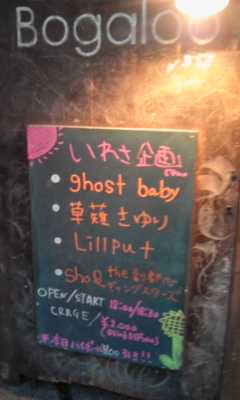 Bogaloo
いわさ企画
ghost baby
草薙さゆり
Lillput
sho@ the 副都心
ギャングスターズ
OPEN/START 18:00/18:30
CRAGE/¥2.000
※本日ハイボール¥100引き!!